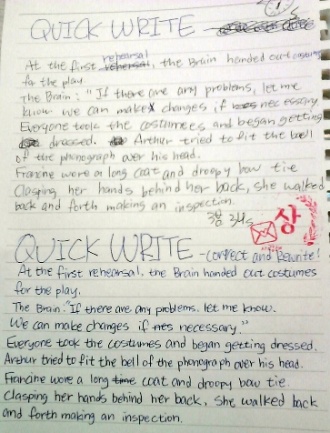 QUICK WRITE
At the first rehearsal, the Brain handed out costumes
for the play.
The Brain: "If there are any problems, let me
know we can make changes if necessary.
Everyone took the costumees and began getting
dressed. Arthur tried to fit the bell
of the phonograph over his head.
Francine wore a long coat and droopy bow tie
Clasping her hands behind her back, she walked
back and forth making an inspection.
상
QUICK WRITE - correct and Rewrite!
At the first rehearsal, the Brain handed out costumes
for the play.
The Brain: "If there are any problems, let me know.
We can make changes if necessary."
Everyone took the costumes and began getting dressed.
Arthur tried to fit the bell of the phonograph over his head.
Francine wore a long coat and droopy bow tie.
Clasping her hands behind her back, she walked back
and forth making an inspection.